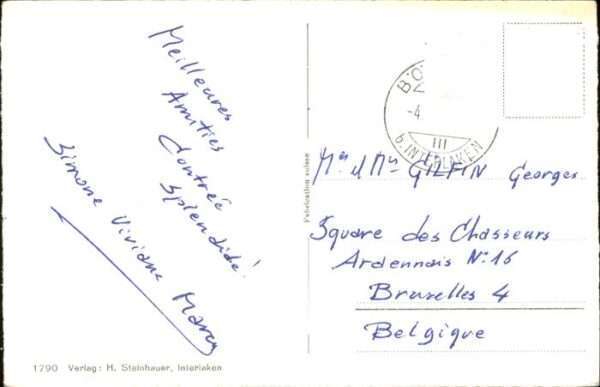 Meilleures
Amitiés
Contrée
splendide!
Simone Viviane Marcy
1790 Verlag: H. Steinhauer, Interlaken
Fabrication suisse
BÖ
-4
III
b. INTERLAKEN
Mr & Me GILFIN Georges
Square des Chasseurs
Ardennais N:16
Bruxelles 4
Belgique